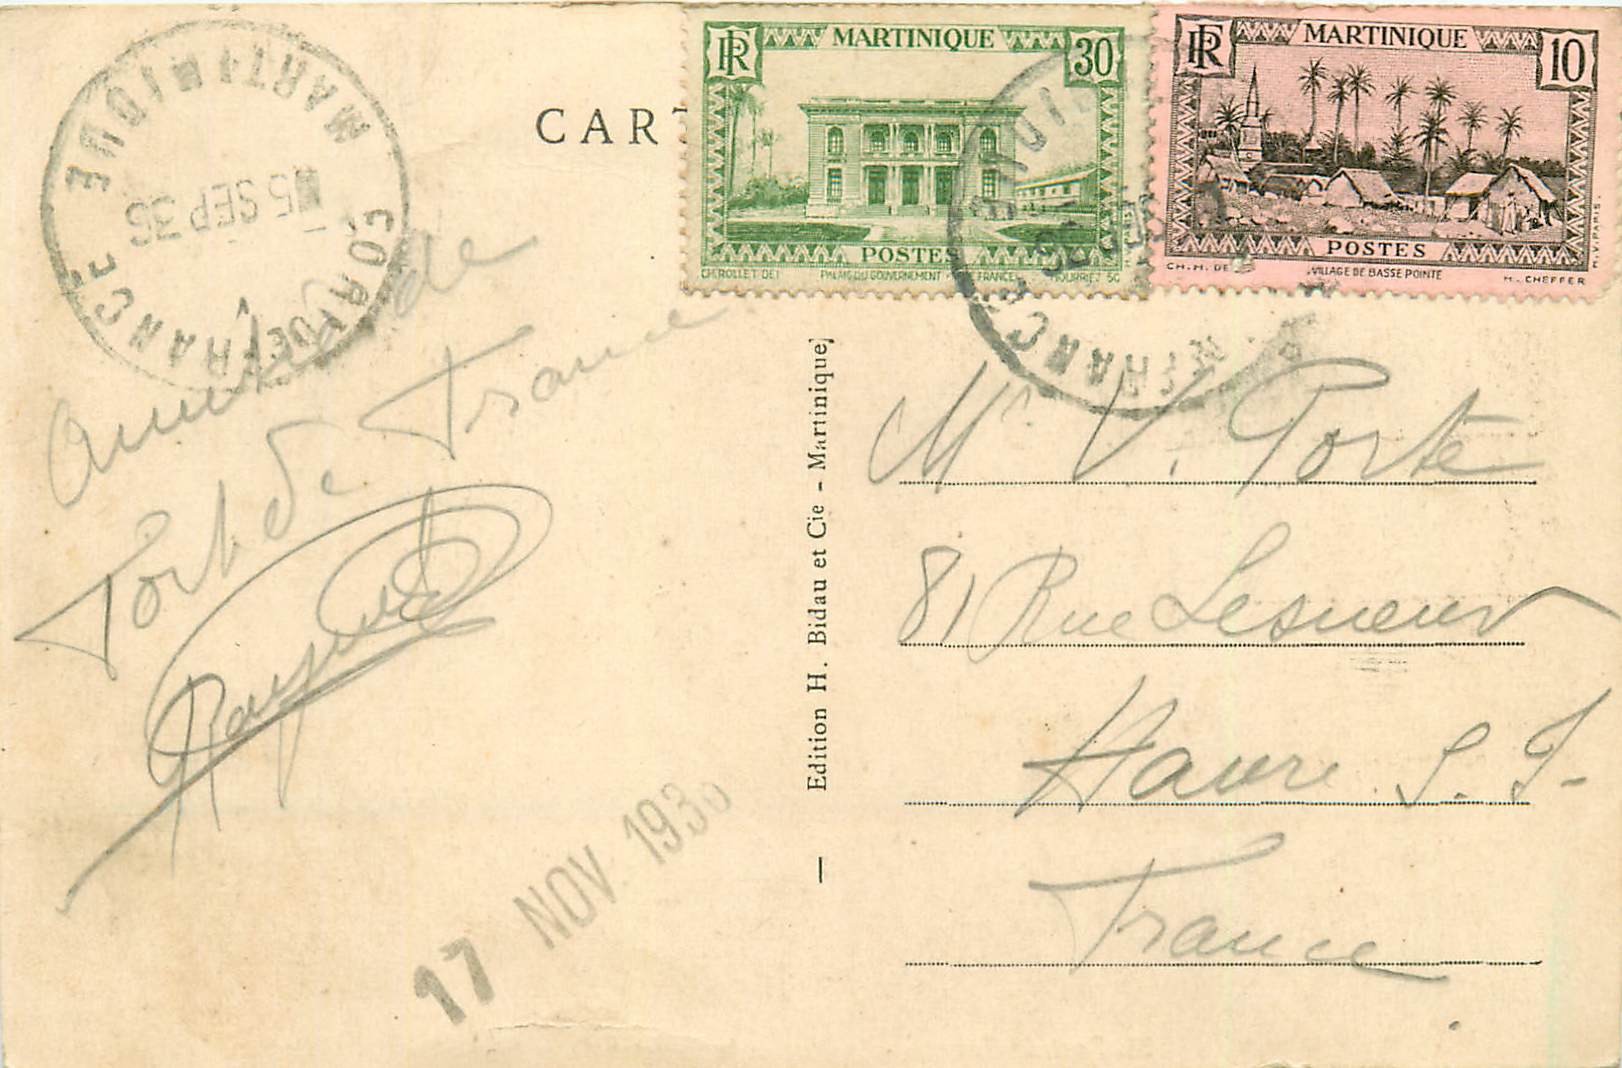 CAR
RF MARTINIQUE 30
POSTES
CHEROLLET DEL PALAIS DU GOUVERNEMENT FRANCE HOURRIEZ SC
RF MARTINIQUE 10
POSTES
CH. H. DE VILLAGE DE BASSE POINTE M. CHEFFER
H. V. PARIS.
MARTINIQUE
5 SEP 36
FORT DE FRANCE
FRANCE
36
Amitiés de
Fort de France
17 NOV 1936
Edition H. Bidau et Cie - Martinique
Mr V. Porte
81 Rue Lesueur
Havre S. I.
France